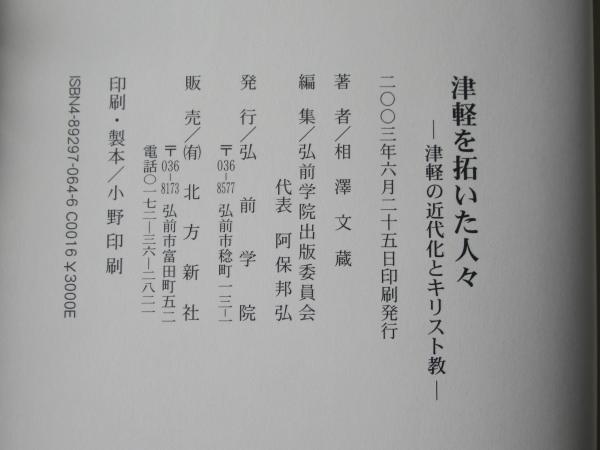 津軽を拓いた人々
―津軽の近代化とキリスト教―
二〇〇三年六月二十五日印刷発行
著者/相澤文蔵
編集/弘前学院出版委員会
代表 阿保邦弘
発行/弘前学院
〒036-8577 弘前市稔町一三―一
販売/(有)北方新社
〒036-8173 弘前市富田町五二
電話〇一七二―三六―二八二一
印刷・製本/小野印刷
ISBN4-89297-064-6 C0016 ¥3000E